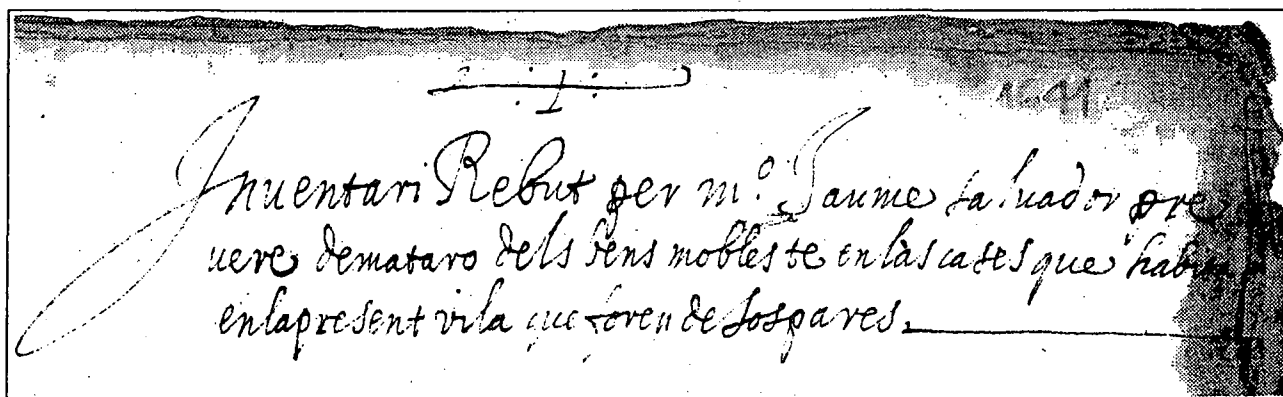 Inuentari Rebut per m.º Jaume saluador pre
uere demataro dels bens mobles te enlas cases que habita
enlapresent vila que foren de sos pares.